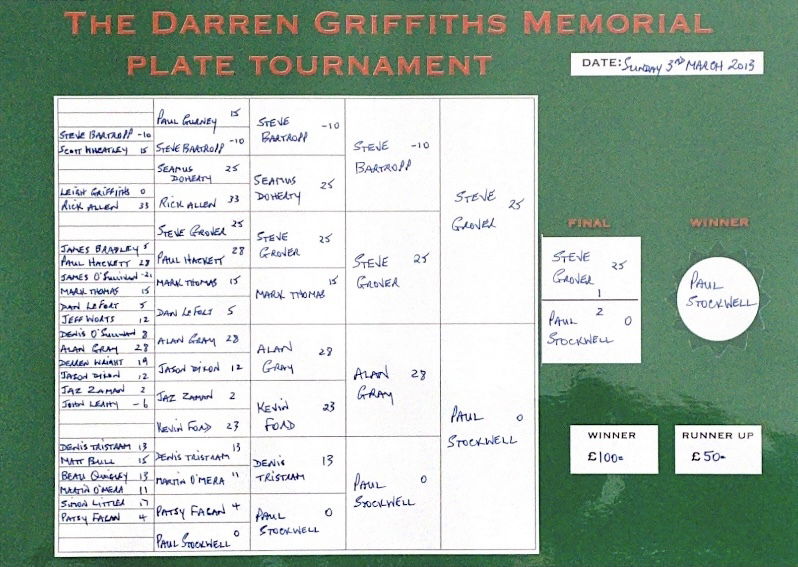 THE DARREN GRIFFITHS MEMORIAL
PLATE TOURNAMENT
DATE: SUNDAY 3RD MARCH 2013
STEVE BARTROPP -10
SCOTT WHEATLEY 15
LEIGH GRIFFITHS 0
RICK ALLEN 33
JAMES BRADLEY 5
PAUL HACKETT 28
JAMES O'SULLIVAN -21
MARK THOMAS 15
DAN LEFORT 5
JEFF WORTS 12
DENIS O'SULLIVAN 8
ALAN GRAY 28
DERREN WRIGHT 19
JASON DIXON 12
JAZ ZAMAN 2
JOHN LEAHY -6
DENIS TRISTRAM 13
MATT BULL 15
BEAU QUIGLEY 13
MARTIN O'MERA 11
SIMON LITTLER 17
PATSY FAGAN 4
PAUL GURNEY 15
STEVE BARTROPP -10
SEAMUS
DOHERTY 25
RICK ALLEN 33
STEVE GROVER 25
PAUL HACKETT 28
MARK THOMAS 15
DAN LEFORT 5
ALAN GRAY 28
JASON DIXON 12
JAZ ZAMAN 2
KEVIN FORD 23
DENIS TRISTRAM 13
MARTIN O'MERA 11
PATSY FAGAN 4
PAUL STOCKWELL 0
STEVE
BARTROPP -10
SEAMUS
DOHERTY 25
STEVE
GROVER 25
MARK THOMAS 15
ALAN
GRAY 28
KEVIN
FORD 23
DENIS
TRISTRAM 13
PAUL
STOCKWELL 0
STEVE
BARTROPP -10
STEVE
GROVER 25
ALAN
GRAY 28
PAUL
STOCKWELL 0
STEVE
GROVER 25
PAUL
STOCKWELL 0
FINAL
STEVE
GROVER 25
1
2
PAUL 0
STOCKWELL
WINNER
PAUL
STOCKWELL
WINNER
£100=
RUNNER UP
£50=